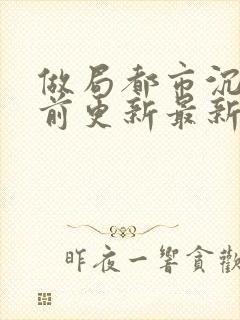 做局都市沉
前更新最新
昨夜一響貪歡